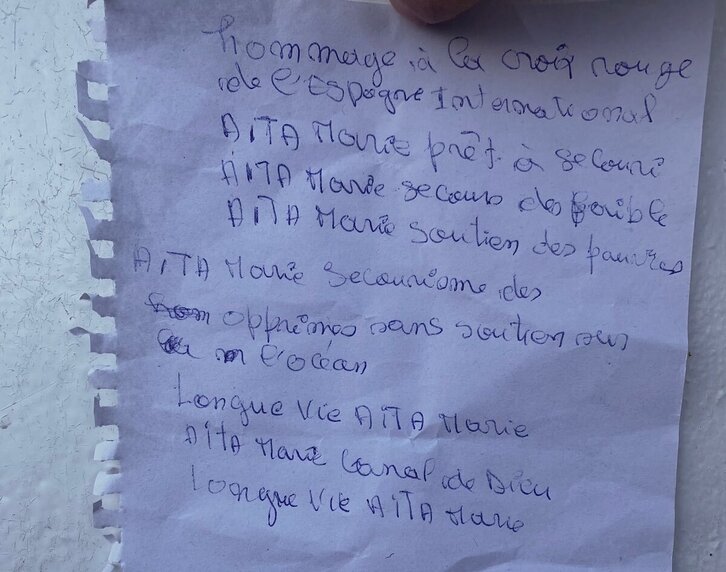 hommage à la croix rouge
de l'Espagne International
AITA Marie prêt à secouri
AITA Marie secours des faible
AITA Marie soutien des pauvres
AITA Marie secourisme des
opprimés sans soutien sur
l'océan
Longue vie AITA Marie
AITA Marie Canal de Dieu
Longue vie AITA Marie